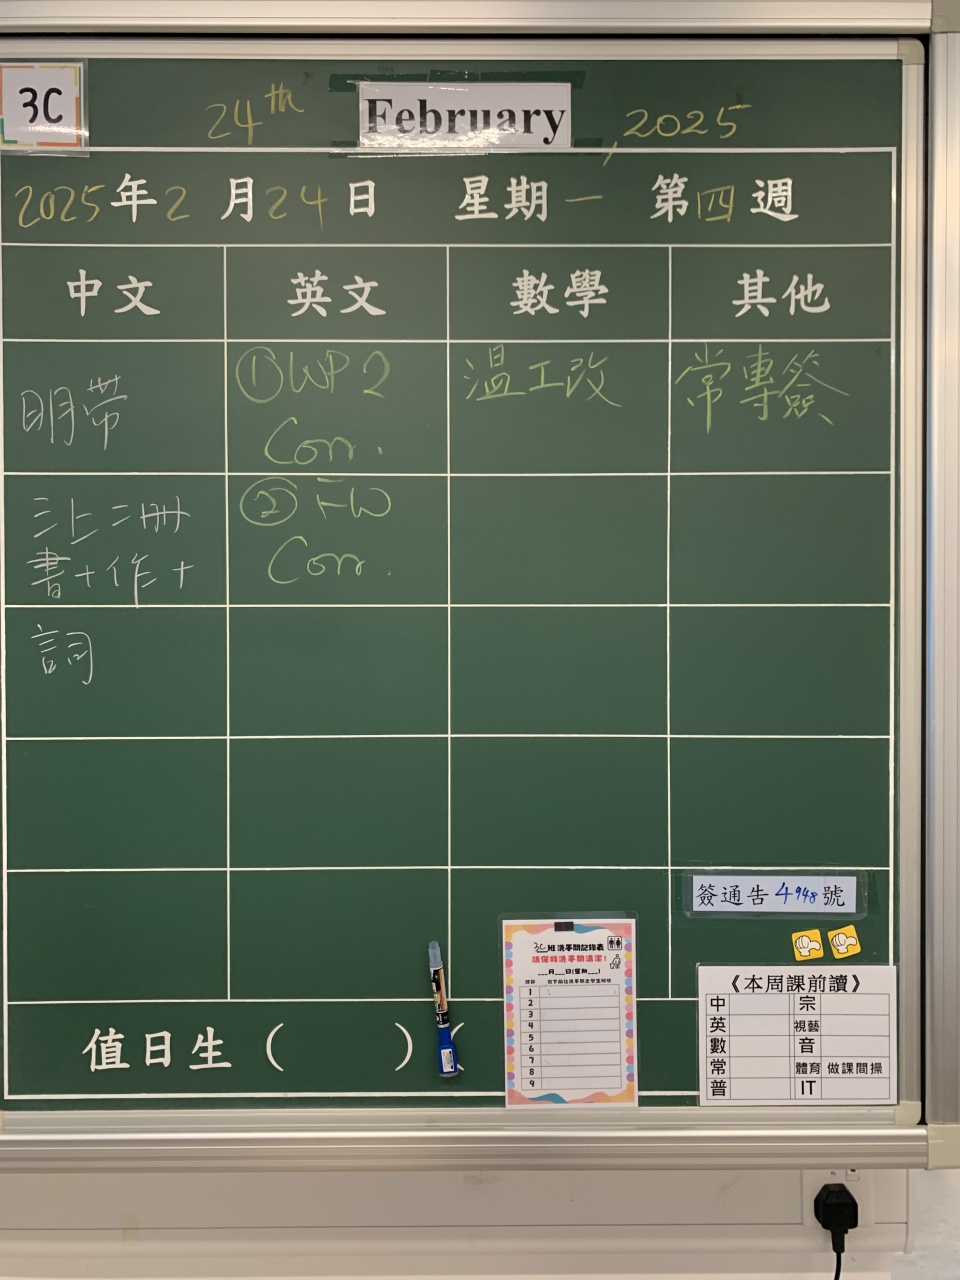 3C
24th February, 2025
2025年2月24日 星期一 第四週
中文 英文 數學 其他
明帶
①WP2
Corr.
溫工改
常專簽
三上二冊
書+作+
②FW
Corr.
詞
簽通告4948號
3C班洗手間記錄表
請保持洗手間清潔!
___月___日(星期___)
1
2
3
4
5
6
7
8
9
《本周課前讀》
中 宗
英 視藝
數 音
常 體育 做課間操
普 IT
值日生( )(